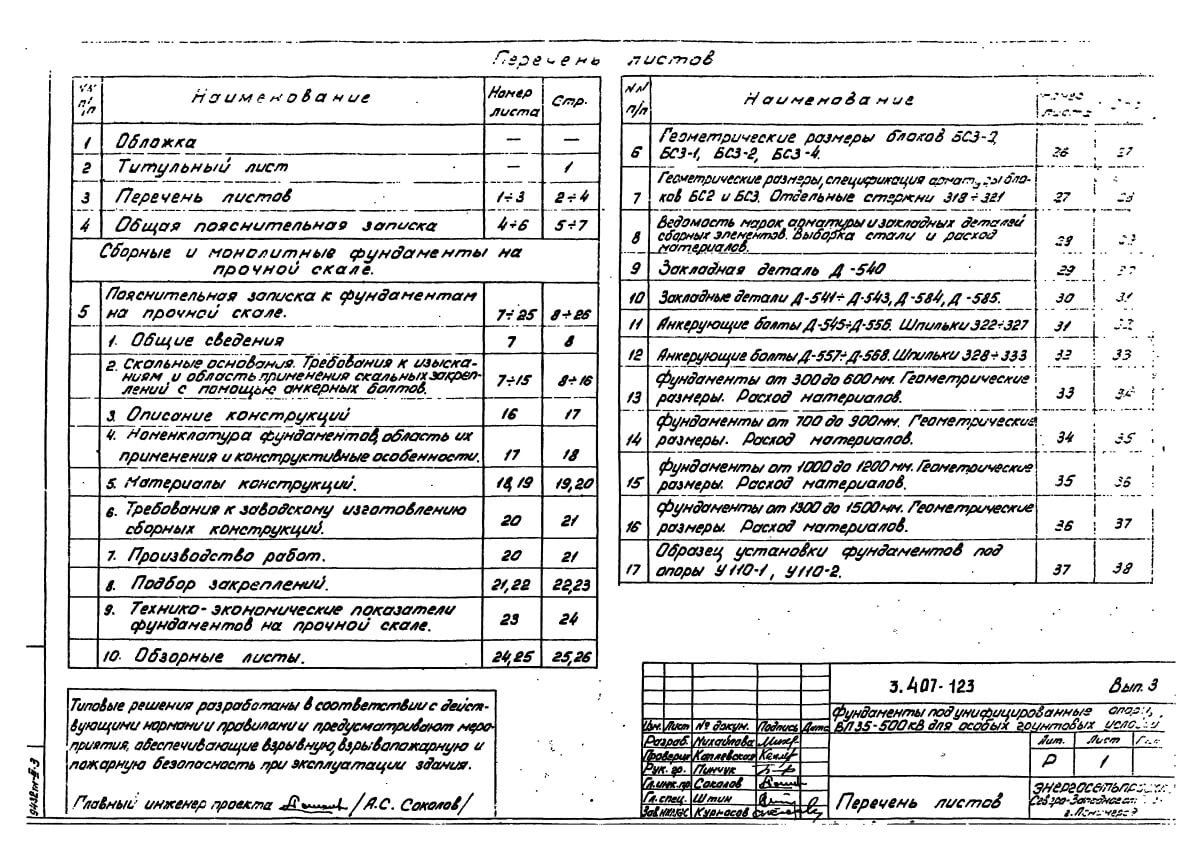 Перечень листов
NN п/п Наименование Номер листа Стр.
1 Обложка — —
2 Титульный лист — 1
3 Перечень листов 1÷3 2÷4
4 Общая пояснительная записка 4÷6 5÷7
Сборные и монолитные фундаменты на
прочной скале.
5 Пояснительная записка к фундаментам
на прочной скале. 7÷25 8÷26
1. Общие сведения 7 8
2. Скальные основания. Требования к изыска-
ниям и область применения скальных закреп-
лений с помощью анкерных болтов. 7÷15 8÷16
3. Описание конструкций 16 17
4. Номенклатура фундаментов, область их
применения и конструктивные особенности. 17 18
5. Материалы конструкций. 18,19 19,20
6. Требования к заводскому изготовлению
сборных конструкций. 20 21
7. Производство работ. 20 21
8. Подбор закреплений. 21,22 22,23
9. Технико-экономические показатели
фундаментов на прочной скале. 23 24
10. Обзорные листы. 24,25 25,26
NN п/п Наименование листа
6 Геометрические размеры блоков БС3-3,
БС3-1, БС3-2, БС3-4. 26 27
7 Геометрические размеры, спецификация арматуры бло-
ков БС2 и БС3. Отдельные стержни 318÷321 27 28
8 Ведомость марок арматуры и закладных деталей
сборных элементов. Выборка стали и расход
материалов.
9 Закладная деталь Д-540 29
10 Закладные детали Д-541÷Д-543, Д-584, Д-585. 30 31
11 Анкерующие болты Д-545÷Д-556. Шпильки 322÷327 31
12 Анкерующие болты Д-557÷Д-568. Шпильки 328÷333 32 33
13 Фундаменты от 300 до 600 мм. Геометрические
размеры. Расход материалов. 33 34
14 Фундаменты от 700 до 900мм. Геометрические
размеры. Расход материалов. 34 35
15 Фундаменты от 1000 до 1200 мм. Геометрические
размеры. Расход материалов. 35 36
16 Фундаменты от 1300 до 1500мм. Геометрические
размеры. Расход материалов. 36 37
17 Образец установки фундаментов под
опоры У110-1, У110-2. 37 38
Типовые решения разработаны в соответствии с дейст-
вующими нормами и правилами и предусматривают меро-
приятия, обеспечивающие взрывную, взрывопожарную и
пожарную безопасность при эксплуатации здания.
Главный инженер проекта /А.С. Соколов/
3.407-123 Вып. 3
Фундаменты под унифицированные опоры
ВЛ 35-500 кВ для особых грунтовых
Изм. Лист № докум. Подпись Дата
Разраб. Михайлова
Проверил Катлевская
Рук. гр. Пинчук
Гл.инж.пр. Соколов
Гл.спец. Штин
Курносов
Перечень листов
Лит. Лист
Р 1
Северо-Западное